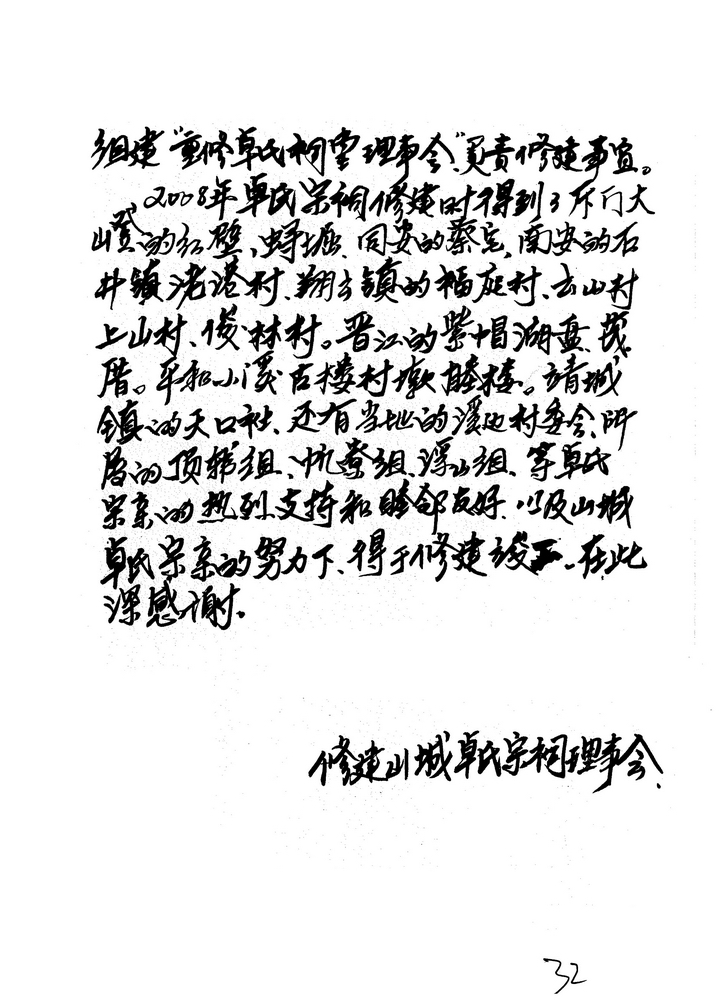 组建“重修卓氏祠堂理事会”负责修建事宜。
2008年卓氏宗祠修建时得到了斥门大
山贤的红壁、蟳堀、同安的蔡宅、南安的石
井镇港村、翔云镇的福庭村、云山村
上山村、俊林村。晋江的紫帽湖盘、茂
厝。平和小溪古楼村墩睦楼。靖城
镇的天口社、还有当地的溪边村委会、所
居的顶郭组、忱寮组、浮山组、等卓氏
宗亲的热烈支持和睦邻友好、以及山城
卓氏宗亲的努力下、得于修建竣工、在此
深感谢。
修建山城卓氏宗祠理事会、
32